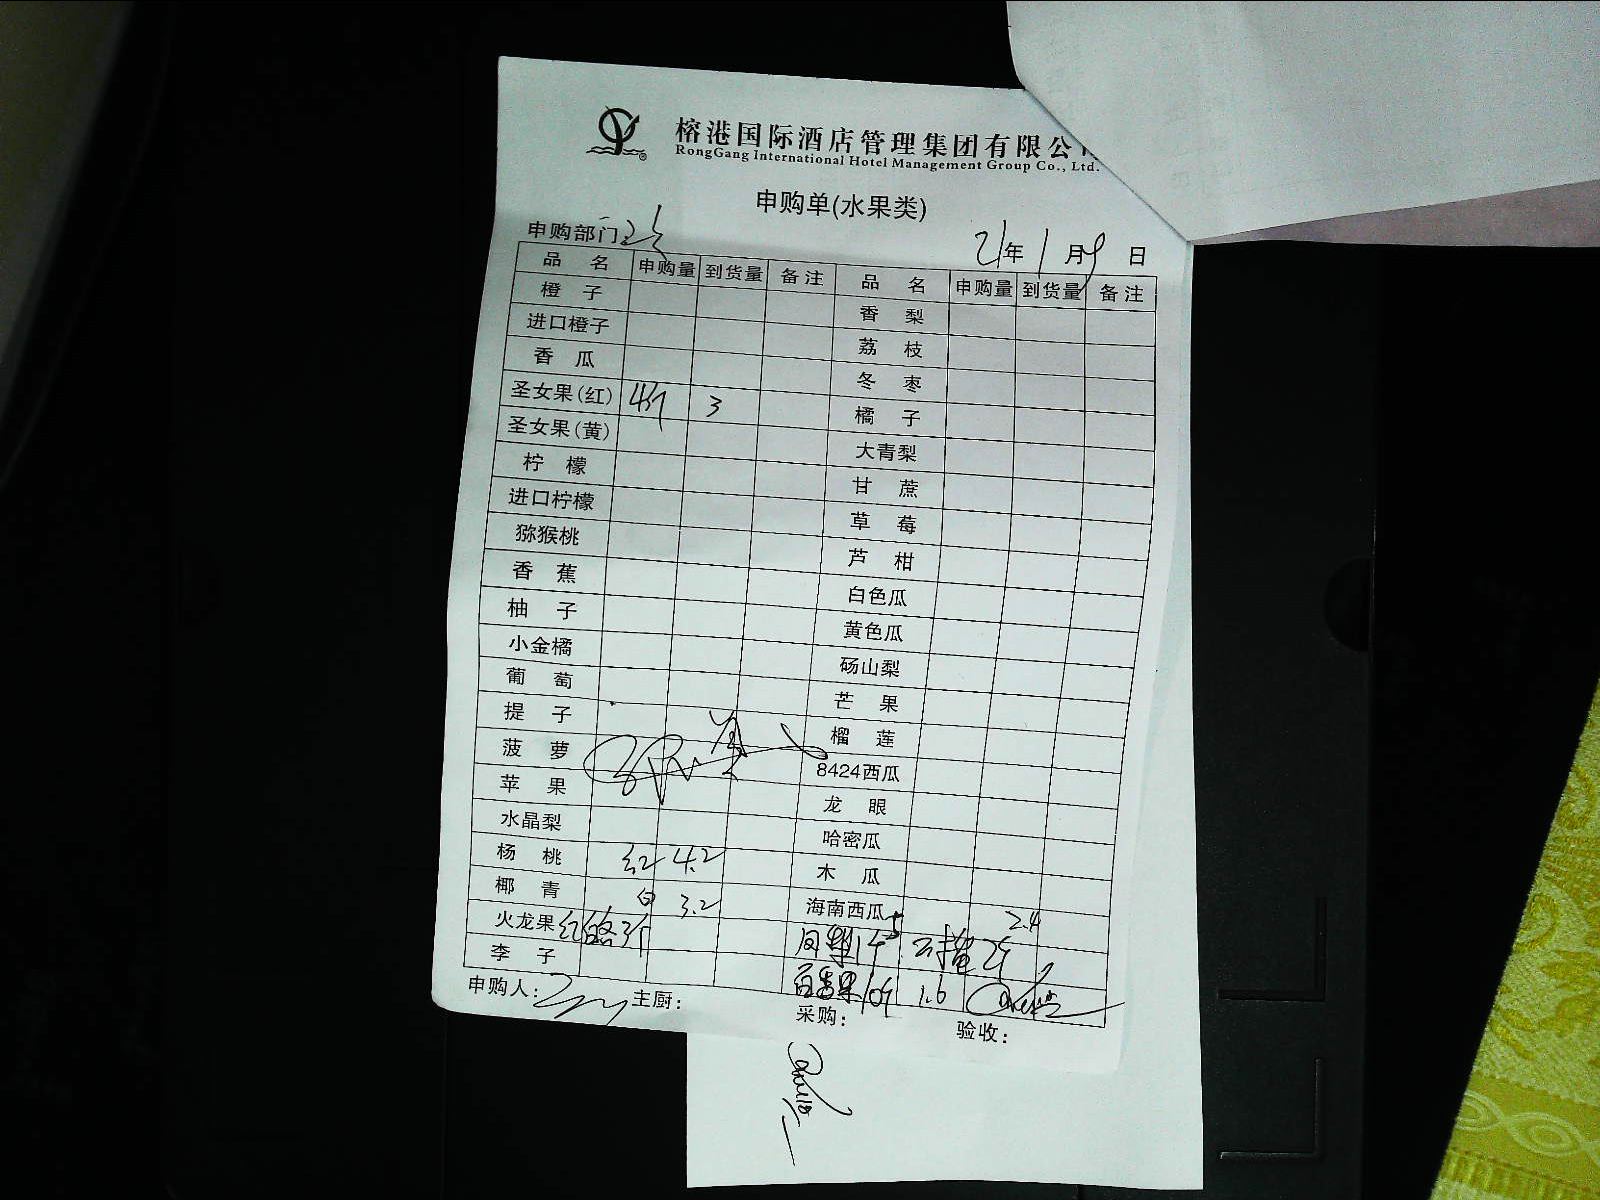 榕港国际酒店管理集团有限公
RongGang International Hotel Management Group Co., Ltd.
申购单(水果类)
申购部门: 21年1月9日
品名 申购量 到货量 备注 品名 申购量 到货量 备注
橙子 香梨
进口橙子 荔枝
香瓜 冬枣
圣女果(红) 4斤 3 橘子
圣女果(黄) 大青梨
柠檬 甘蔗
进口柠檬 草莓
猕猴桃 芦柑
香蕉 白色瓜
柚子 黄色瓜
小金橘 砀山梨
葡萄 芒果
提子 榴莲
菠萝 8424西瓜
苹果 龙眼
水晶梨 哈密瓜
杨桃 红 4.2 木瓜
椰青 白 3.2 海南西瓜 2.4
火龙果 红
李子 百香果 1.6
申购人: 主厨: 采购: 验收: